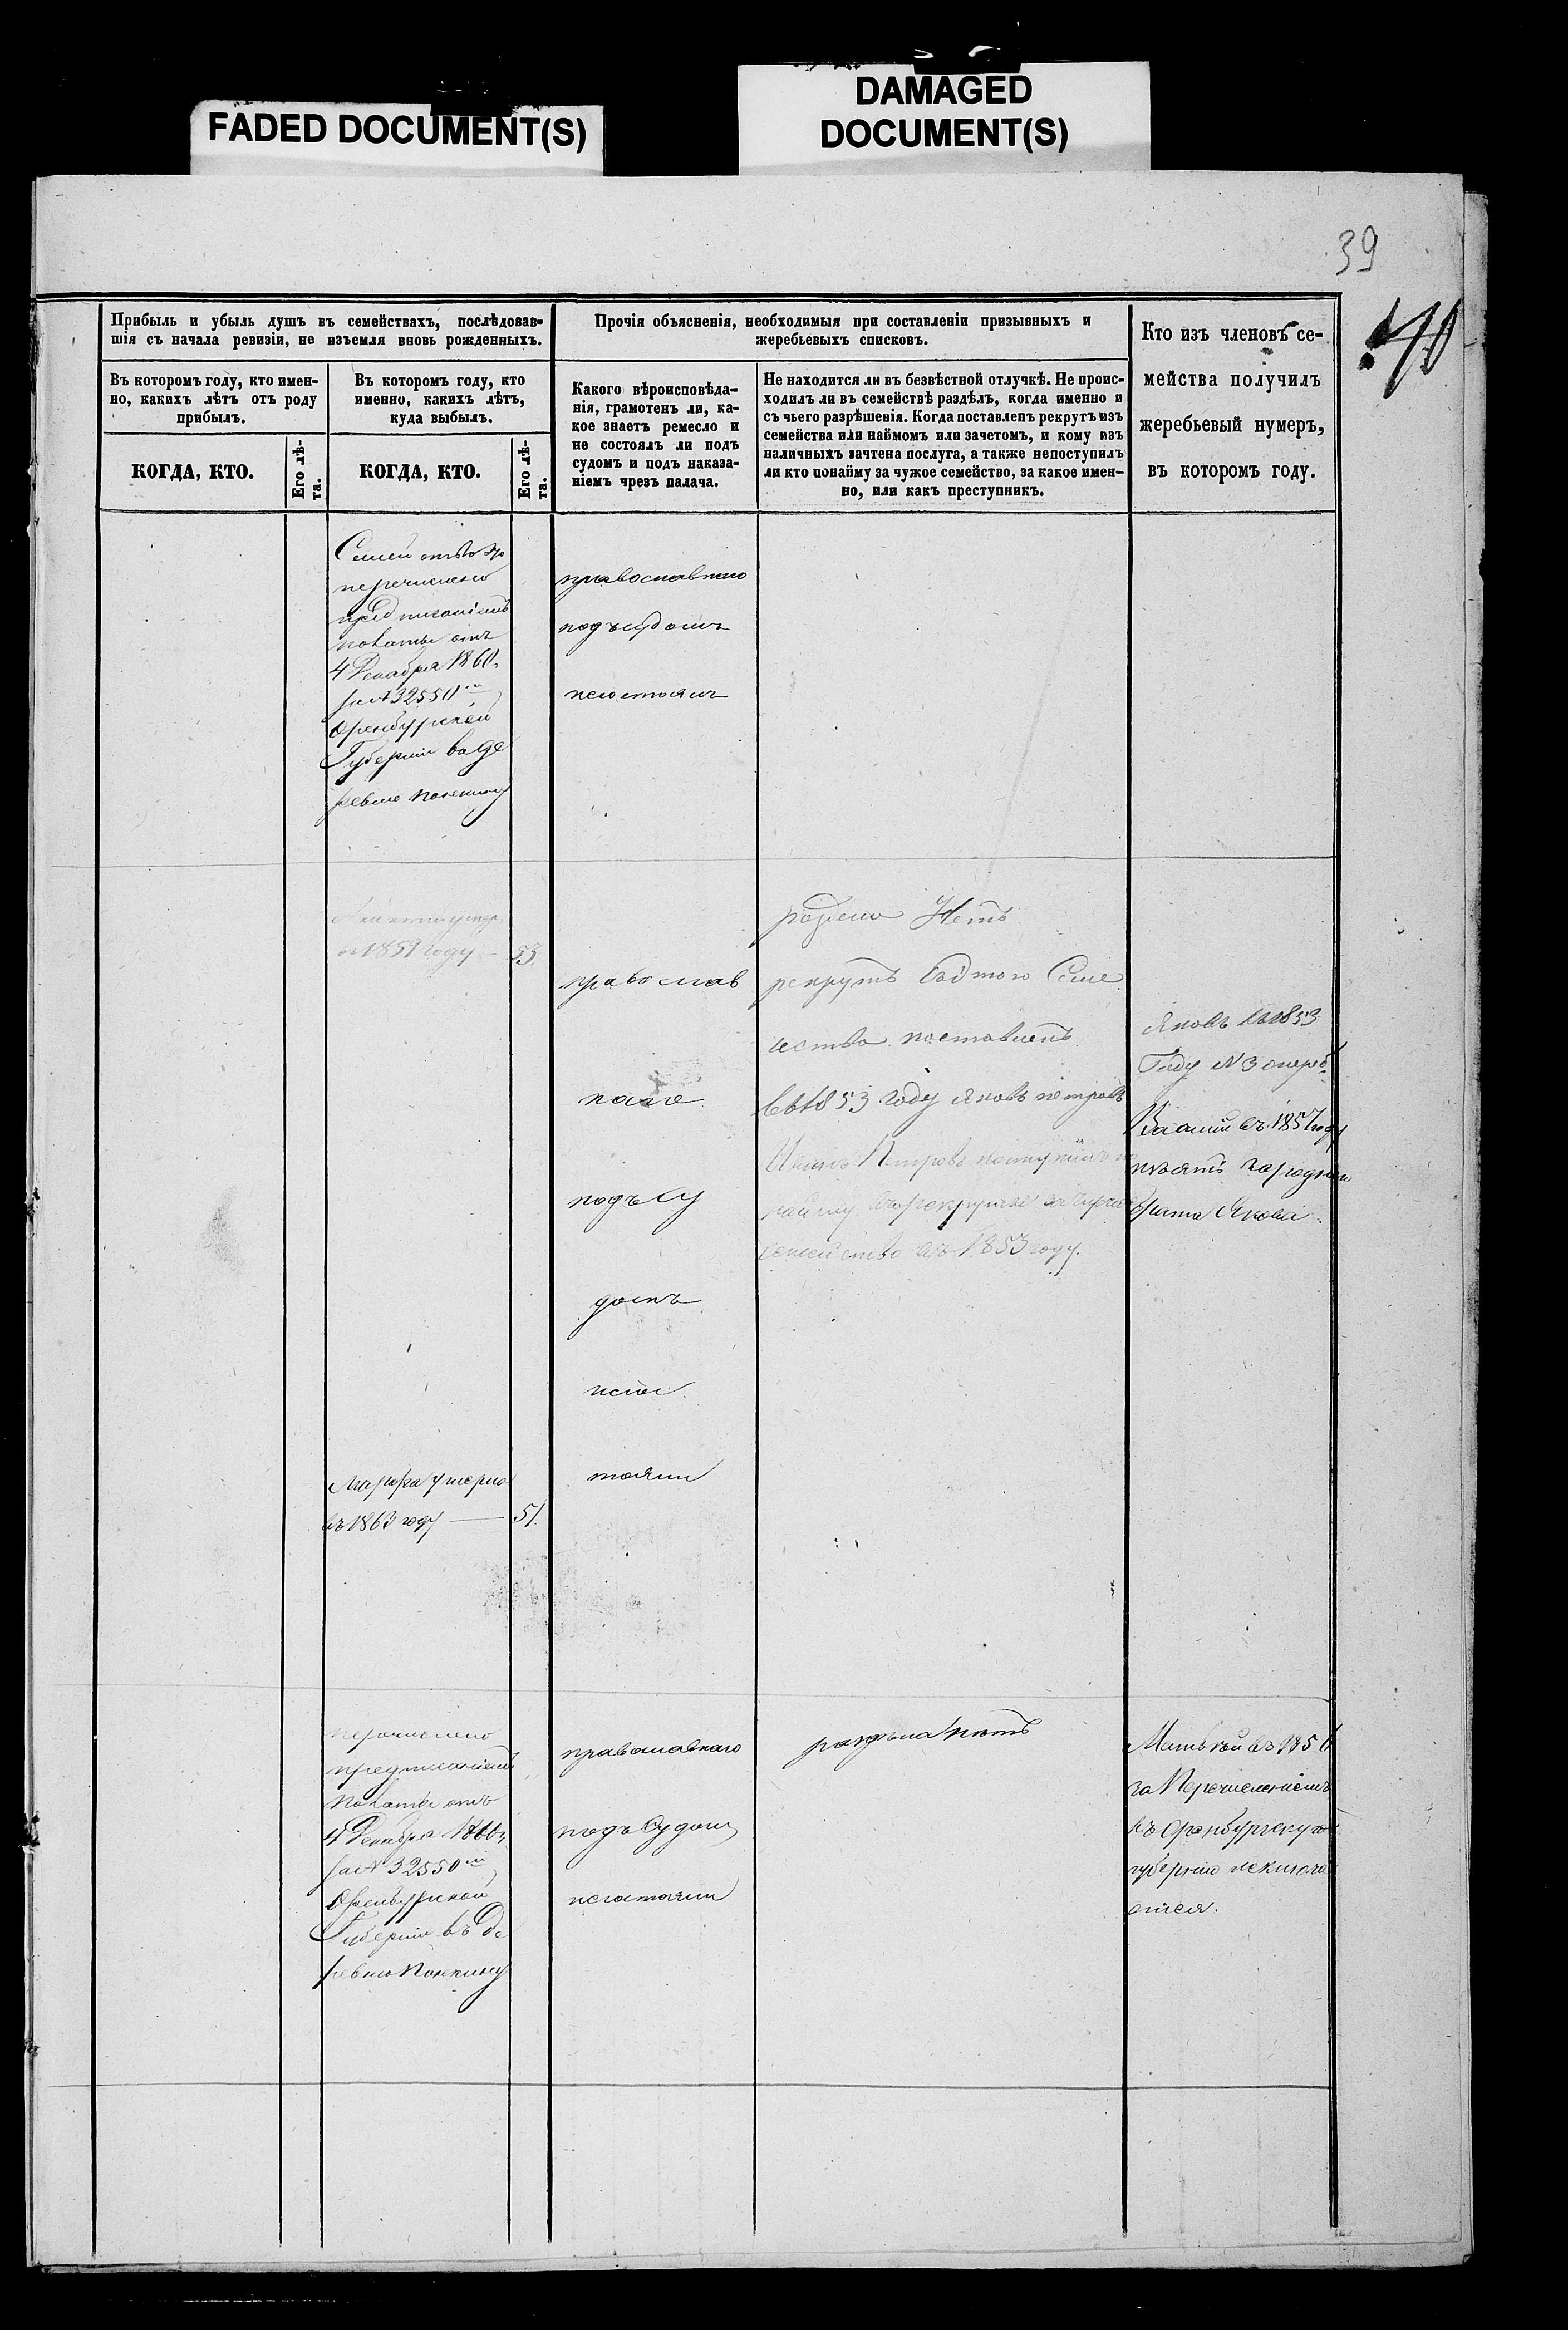 FADED DOCUMENT(S)
DAMAGED
DOCUMENT(S)
39
40
Прибыль и убыль душъ въ семействахъ, послѣдовав-
шія съ начала ревизіи, не изъемля вновь рожденныхъ.
Прочія объясненія, необходимыя при составленіи призывныхъ и
жеребьевыхъ списковъ.
Кто изъ членовъ се-
мейства получилъ
жеребьевый нумеръ,
въ которомъ году.
Въ которомъ году, кто имен-
но, какихъ лѣтъ отъ роду
прибылъ.
Въ которомъ году, кто
именно, какихъ лѣтъ,
куда выбылъ.
Какого вѣроисповѣда-
нія, грамотенъ ли, ка-
кое знаетъ ремесло и
не состоялъ ли подъ
судомъ и подъ наказа-
ніемъ чрезъ палача.
Не находится ли въ безвѣстной отлучкѣ. Не проис-
ходилъ ли въ семействѣ раздѣлъ, когда именно и
съ чьего разрѣшенія. Когда поставленъ рекрутъ изъ
семейства или наймомъ или зачетомъ, и кому изъ
наличныхъ зачтена послуга, а также непоступилъ
ли кто понайму за чужое семейство, за какое имен-
но, или какъ преступникъ.
КОГДА, КТО.
Его лѣ-
та.
КОГДА, КТО.
Его лѣ-
та.
перечислено
предписаніемъ
палаты отъ
4 Декабря 1860
за № 32550
Оренбургской
Губерніи въ де
ревню
православнаго
подъ судомъ
несостоялъ
1859 году — 53.
православ
наго
подъ су
домъ
несос
тояли
Нетъ
рекрутъ Семе
йства поставленъ
въ 1853 году Яковъ Петровъ
Иванъ Петровъ поступилъ по
найму
семейство въ 1853 году.
Яковъ въ 1853
Году № 3
въ 1857 году
за роднаго
брата Якова.
Марфа умерла
въ 1863 году — 51.
перечислено
предписаніемъ
палаты отъ
4 Декабря 1860
за № 32550
Оренбургской
Губерніи въ Де
ревню
православнаго
подъ Судомъ
несостояли
раздела нетъ
Матвей въ 185
за Перечисленіемъ
въ Оренбургскую
губернію исключа
ется.